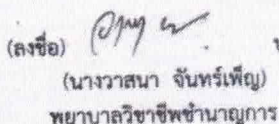 (ลงชื่อ)
(นางวาสนา จันทร์เพ็ญ)
พยาบาลวิชาชีพชำนาญการ